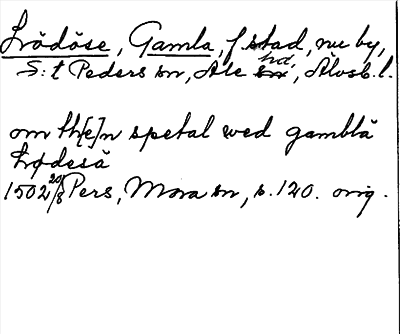 Lödöse, Gamla, f. stad, nu by,
S:t Peders sn, Ale hd, Älvsb. l.
om th[e]n spetal wed gamblä
Lødesä
1502 20/8 Pers, Mora sn, s. 120. orig.